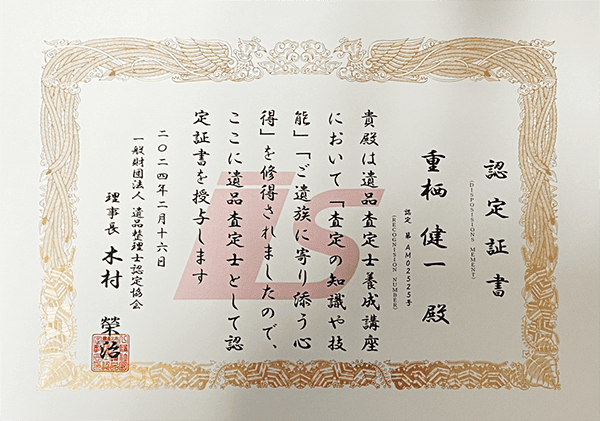 認定証書
(DISPOSISIONS MEMENT)
重栖 健一 殿
認定 第 AM02525号
(RECOGNISION NUMBER)
貴殿は遺品査定士養成講座
において「査定の知識や技
能」「ご遺族に寄り添う心
得」を修得されましたので、
ここに遺品査定士として認
定証書を授与します
二〇二四年二月十六日
一般財団法人 遺品整理士認定協会
理事長 木村 榮治
is